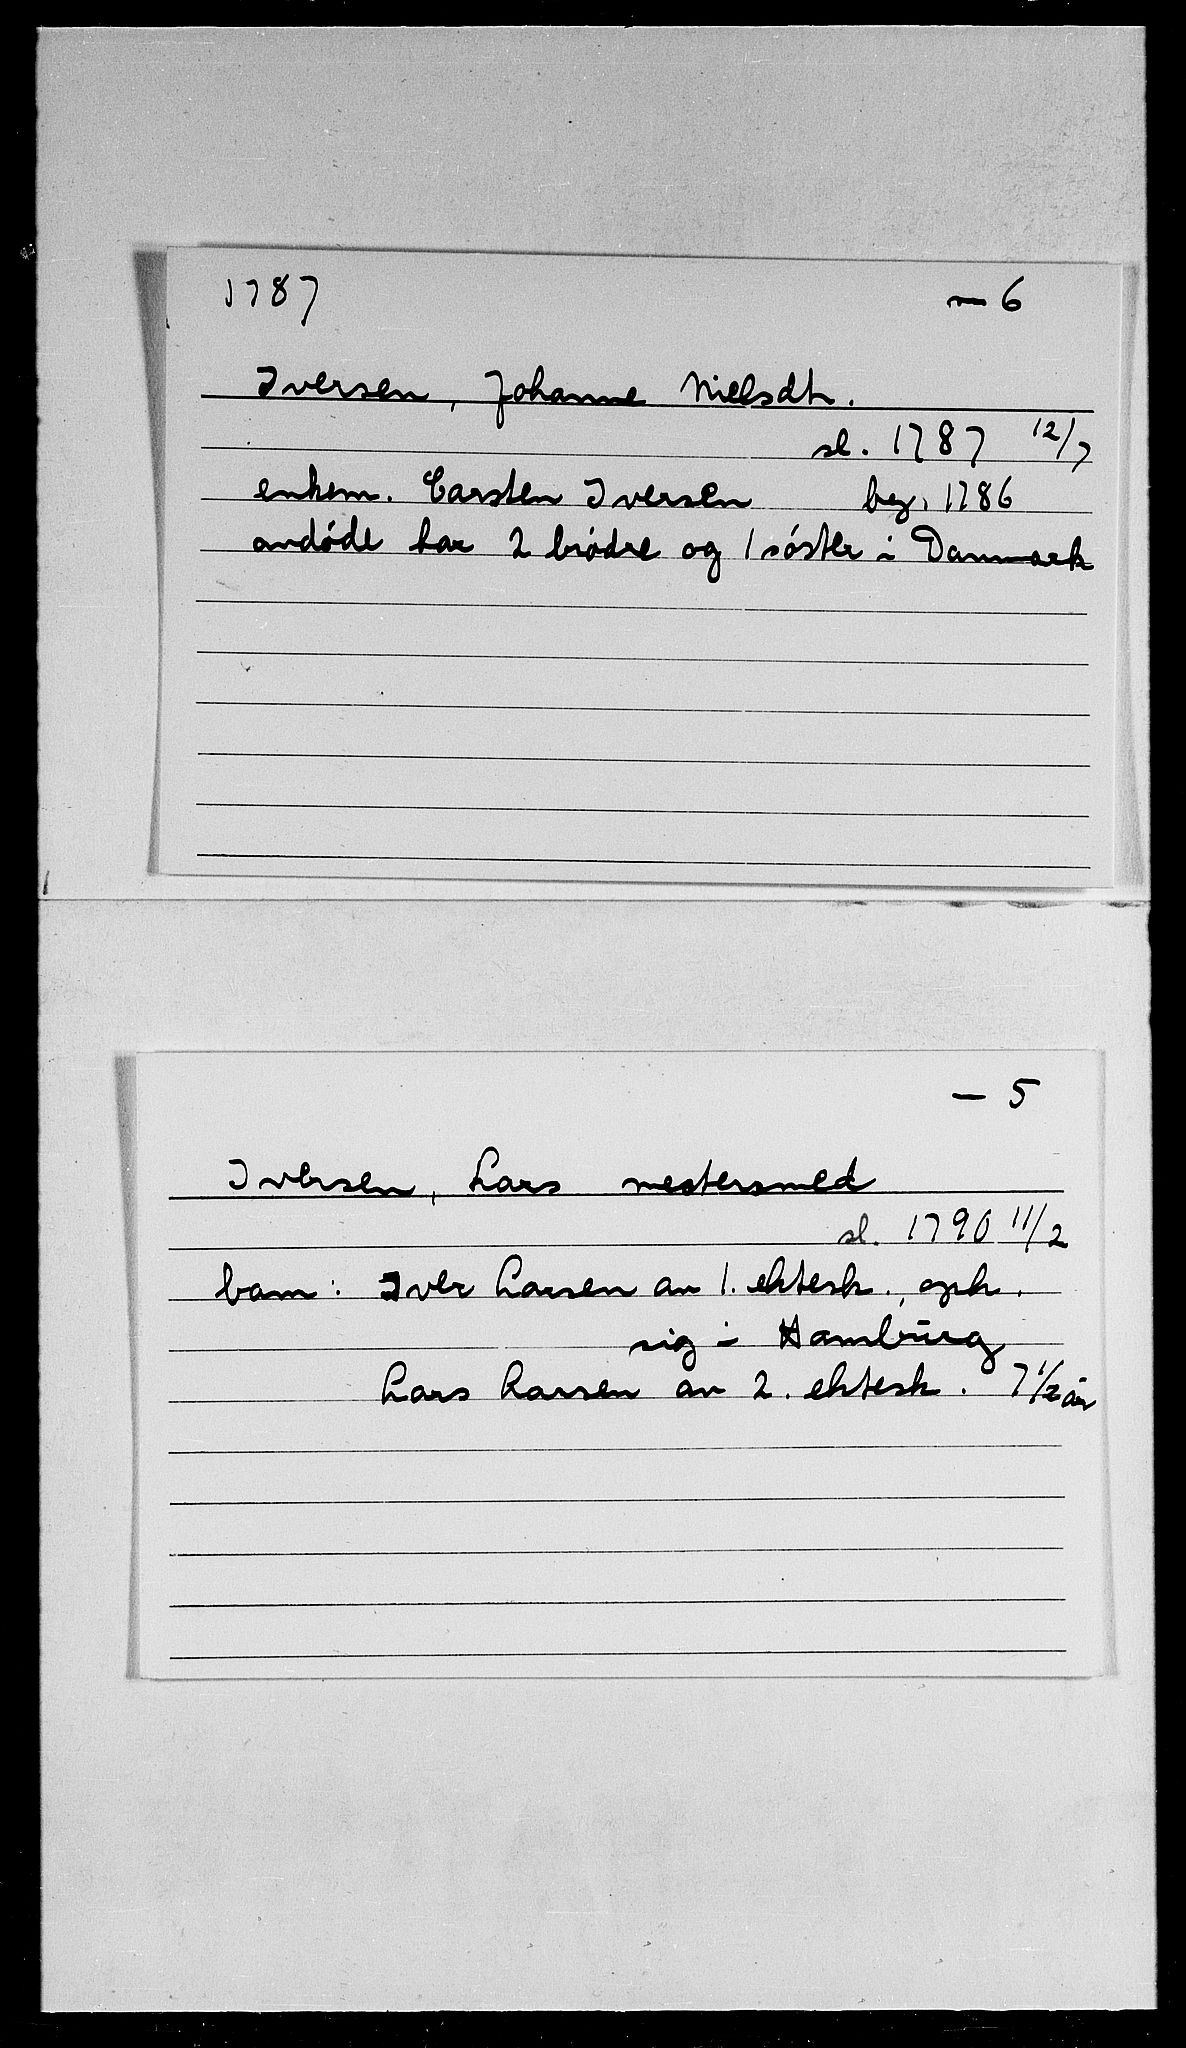 1787 — 6
Iversen, Johanne Nielsdtr.
sl. 1787 12/7
enkem. Carsten Iversen beg. 1786
avdøde har 2 brødre og 1 søster i Danmark
— 5
Iversen, Lars mestersmed
sl. 1790 11/2
barn: Iver Larsen av 1. ektesk., oph.
sig i Hamburg
Lars Larsen av 2. ektesk. 7 1/2 år